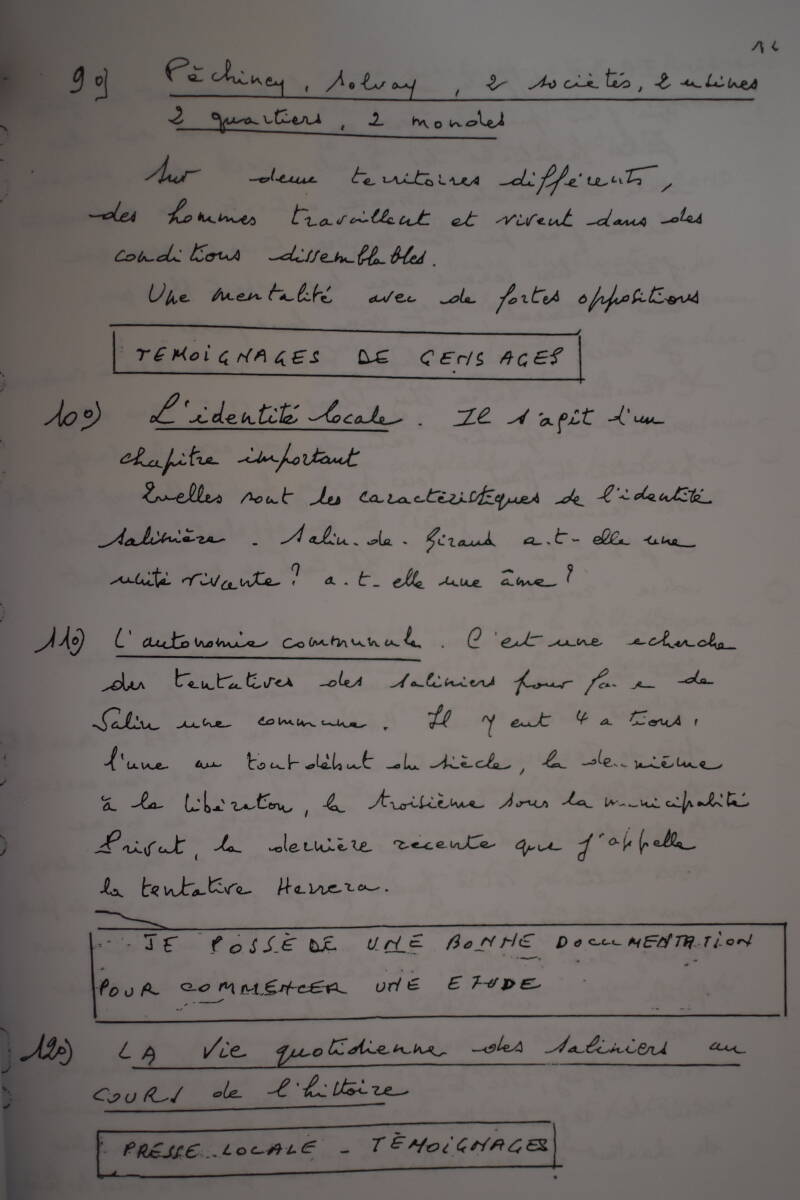 16
9°) Péchiney, Solvay, 2 sociétés, 2 usines
2 quartiers, 2 mondes
Sur deux territoires différents,
des hommes travaillent et vivent dans des
conditions dissemblables.
Une mentalité avec de fortes oppositions
TEMOIGNAGES DE GENS AGES
10°) L'identité locale. Il s'agit d'un
chapitre important
Quelles sont les caractéristiques de l'identité
salinière. Salin-de-Giraud a-t-elle une
unité vivante? a-t-elle une âme?
11°) L'autonomie communale. C'est une echerche
des tentatives des saliniers pour fa e de
Salin une commune. Il y eut 4 a tions:
l'une au tout début du siècle, la de..xième
à la libération, la troisième sous la m.nicipalité
Privat, la dernière récente que j'appelle
la tentative Herrera.
JE POSSÈDE UNE BONNE DOCUMENTATION
POUR COMMENCER UNE ETUDE
12°) LA Vie quotidienne des saliniers au
COURS de l'histoire
PRESSE LOCALE - TÉMOIGNAGES